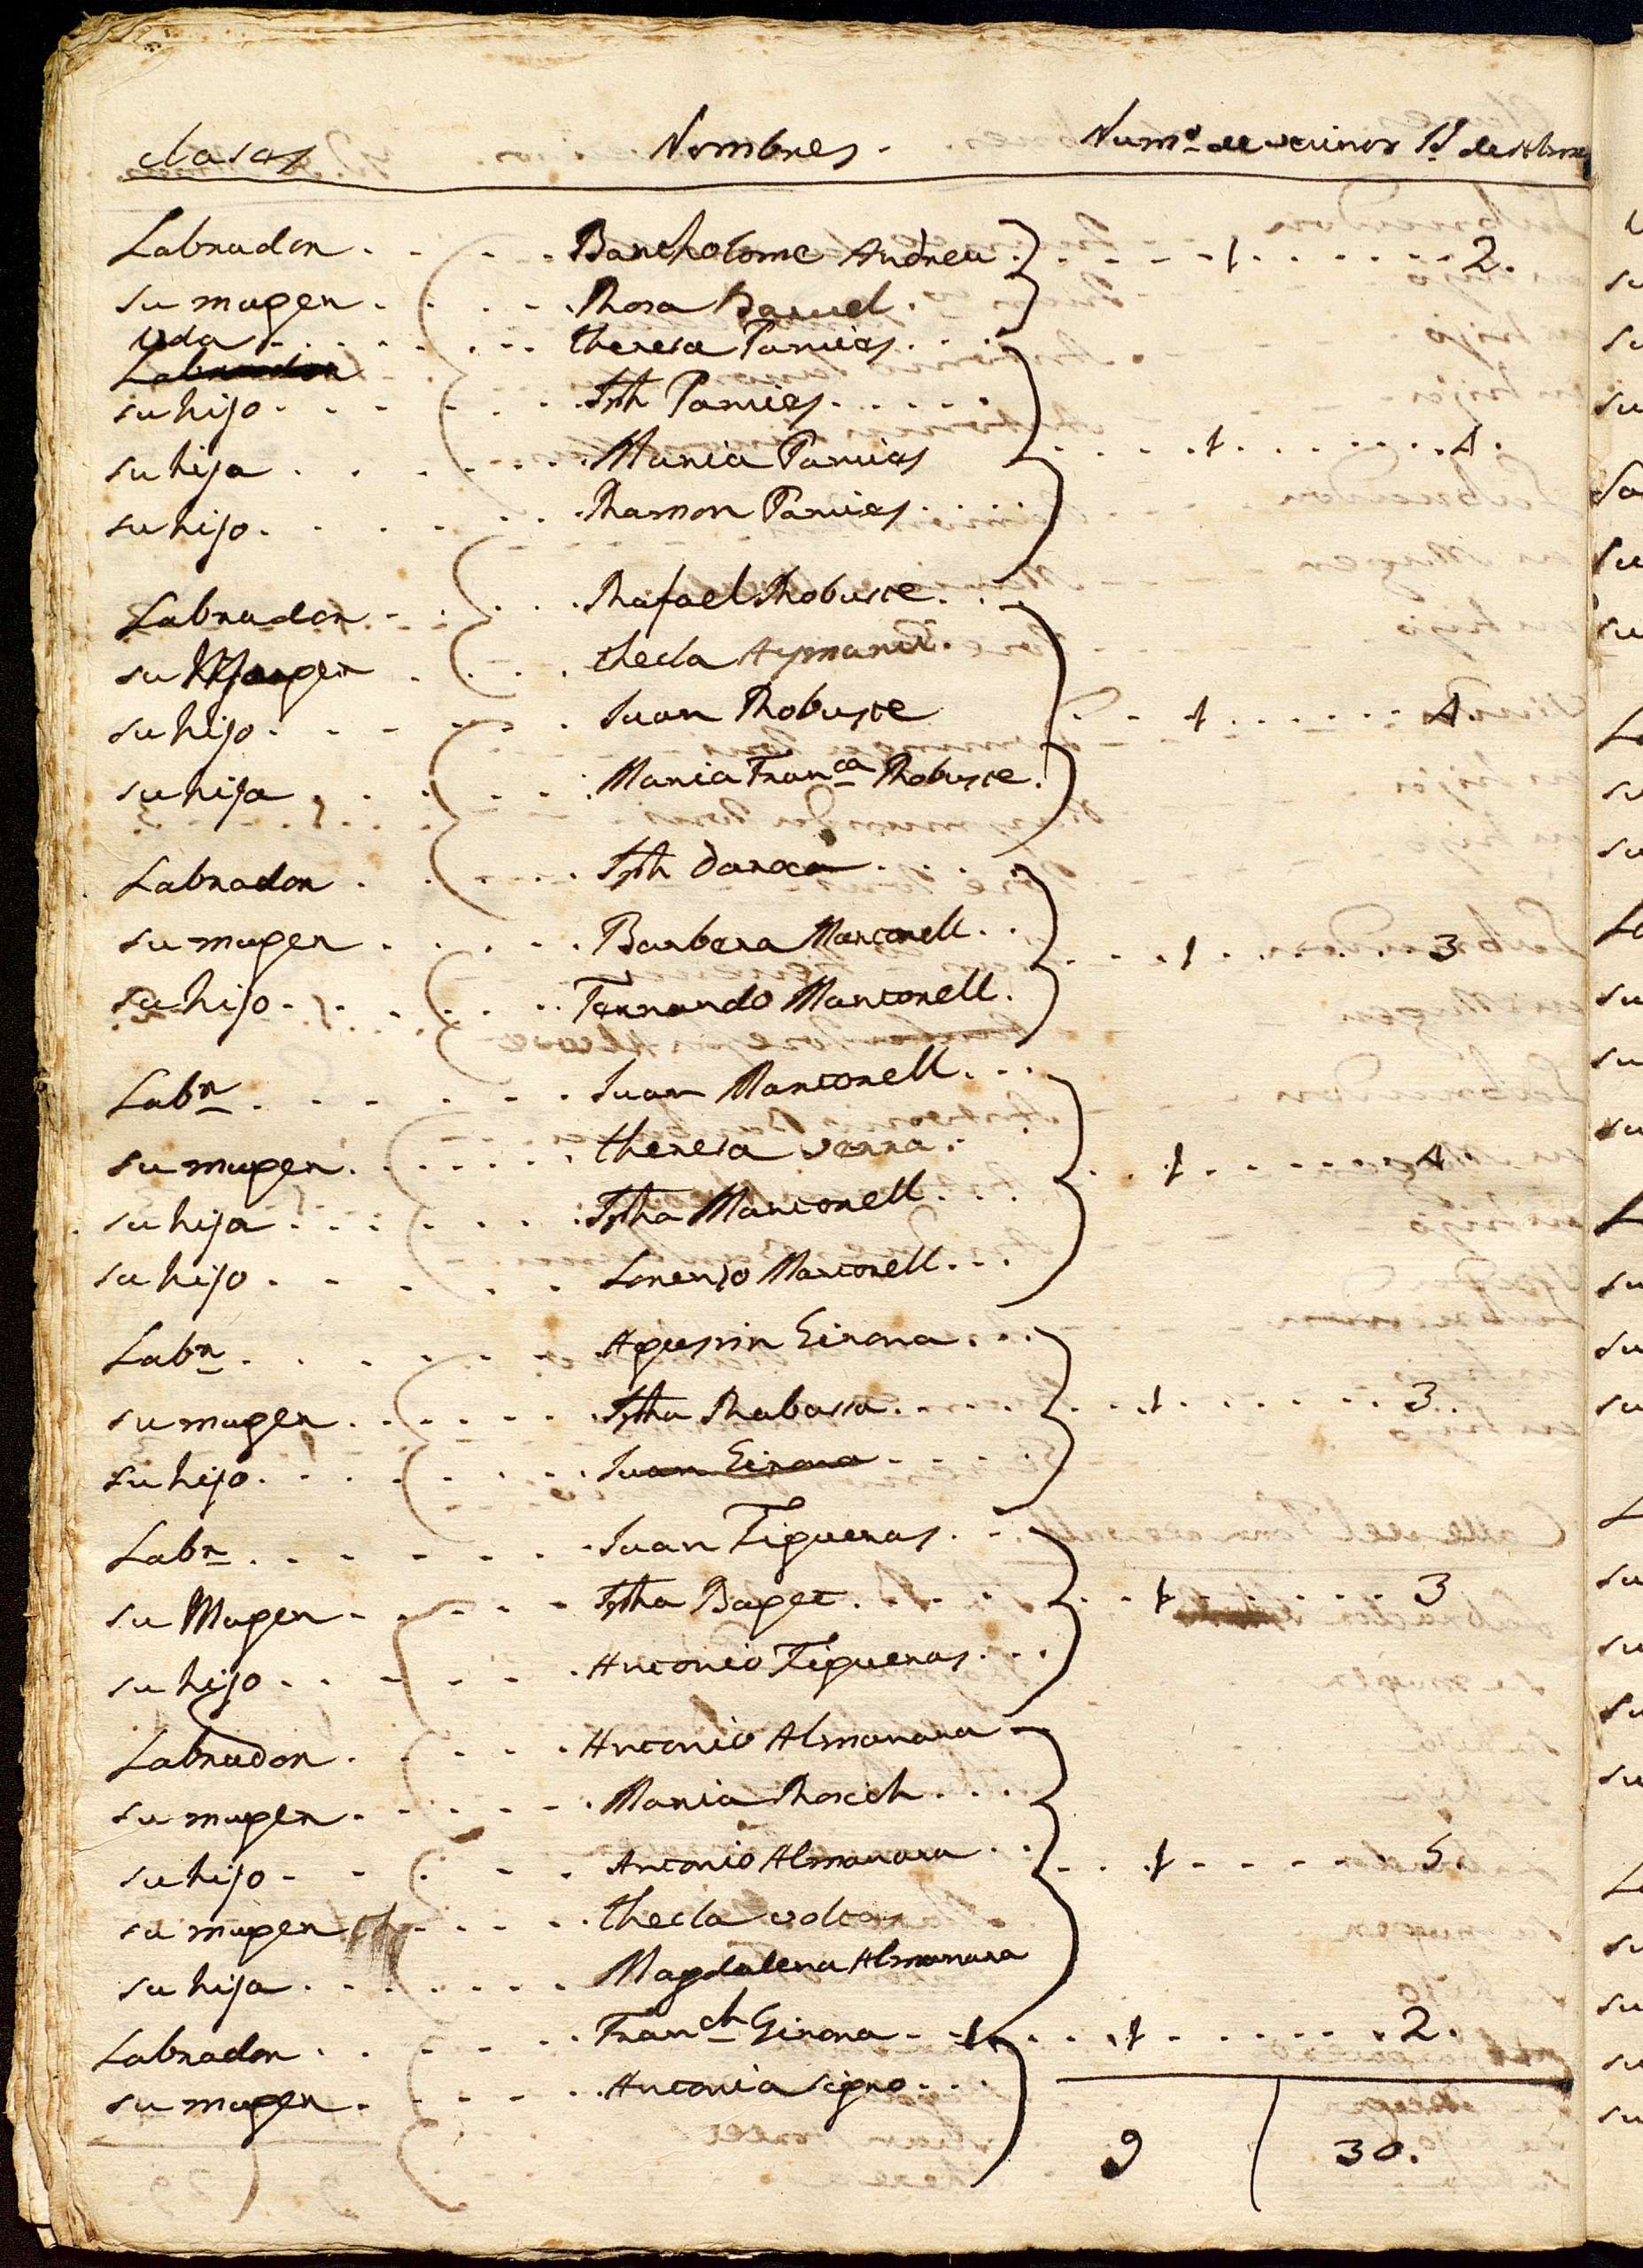 clases Nombres. Num.o de vecinos Yd. de Almas
Labrador . . . . . Bartholome Andreu . . . . 1 . . . . . . 2.
su muger . . . . . Rosa Baruel.
Vda . . . . . . . . theresa Pamies . . .
Labrador
su hijo . . . . . . Jph Pamies . . . . .
su hija . . . . . . Maria Pamies . . . . 1 . . . . . . 4.
su hijo . . . . . . Ramon Pamies . .
Labrador . . . . . Rafael Robuste . .
su Muger . . . . thecla Aymarich.
su hijo . . . . . . Juan Robuste . . . 1 . . . . . . 4.
su hija . . . . . . Maria Fran.ca Robuste.
Labrador . . . . . . Jph daroca . . . .
su muger . . . . . Barbera Martorell . . . . . 1 . . . . . . 3
su hijo . . . . . . Fernando Martorell.
Lab.r . . . . . . . Juan Martorell . . .
su muger . . . . . . theresa verra . . . . 1 . . . . . 4.
su hija . . . . . . Jpha Martorell . . .
su hijo . . . . . . Lorenzo Martorell . . .
Lab.r . . . . . . . Agustin Girona . . .
su muger . . . . . . Jpha Rabassa . . . . . . . 1 . . . . . . 3.
su hijo . . . . . . . Juan Girona . . . .
Lab.r . . . . . . . Juan Figueras . .
su Muger . . . . . Jpha Baget . . . . . . 1 . . . . . . 3
su hijo . . . . . . Antonio Figueras . . .
Labrador . . . . . Antonio Almanara
su muger . . . . . . Maria Rosich . . .
su hijo . . . . . Antonio Almanara . . . . . 1 . . . . . 5.
su muger . . . . . thecla voltor
su hija . . . . . . . Magdalena Almanara
Labrador . . . . . Fran.ch Girona . . . . . 1 . . . . . . 2.
su muger . . . . . Antonia signo . . .
9 30.